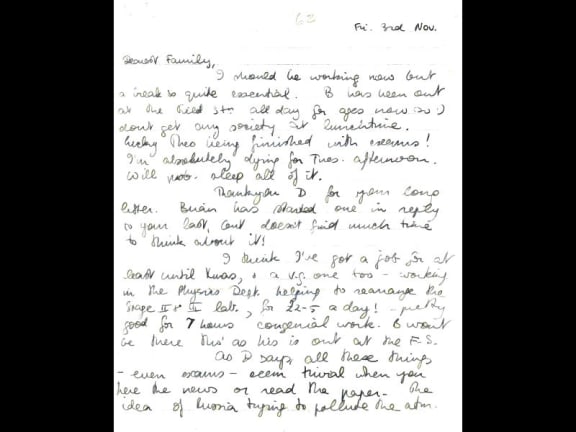 62
Fri. 3rd Nov.
Dearest Family,
I should be working now but
a break is quite essential. B has been out
at the Field Stn. all day for ages now so I
dont get any society at lunchtime.
Lucky Theo being finished with exams!
I'm absolutely dying for Tues. afternoon.
Will prob. sleep all of it.
Thankyou D for your long
letter. Brian has started one in reply
to your last, but doesn't find much time
to think about it!
I think I've got a job for at
least until Xmas, & a v.g. one too - working
in the Physics Dept. helping to rearrange the
Stage II & III lab., for £2-5 a day! - pretty
good for 7 hours congenial work. B won't
be there tho' as his is out at the F.S.
As D says, all these things
- even exams - seem trivial when you
hear the news or read the paper - the
idea of Russia trying to pollute the atm.